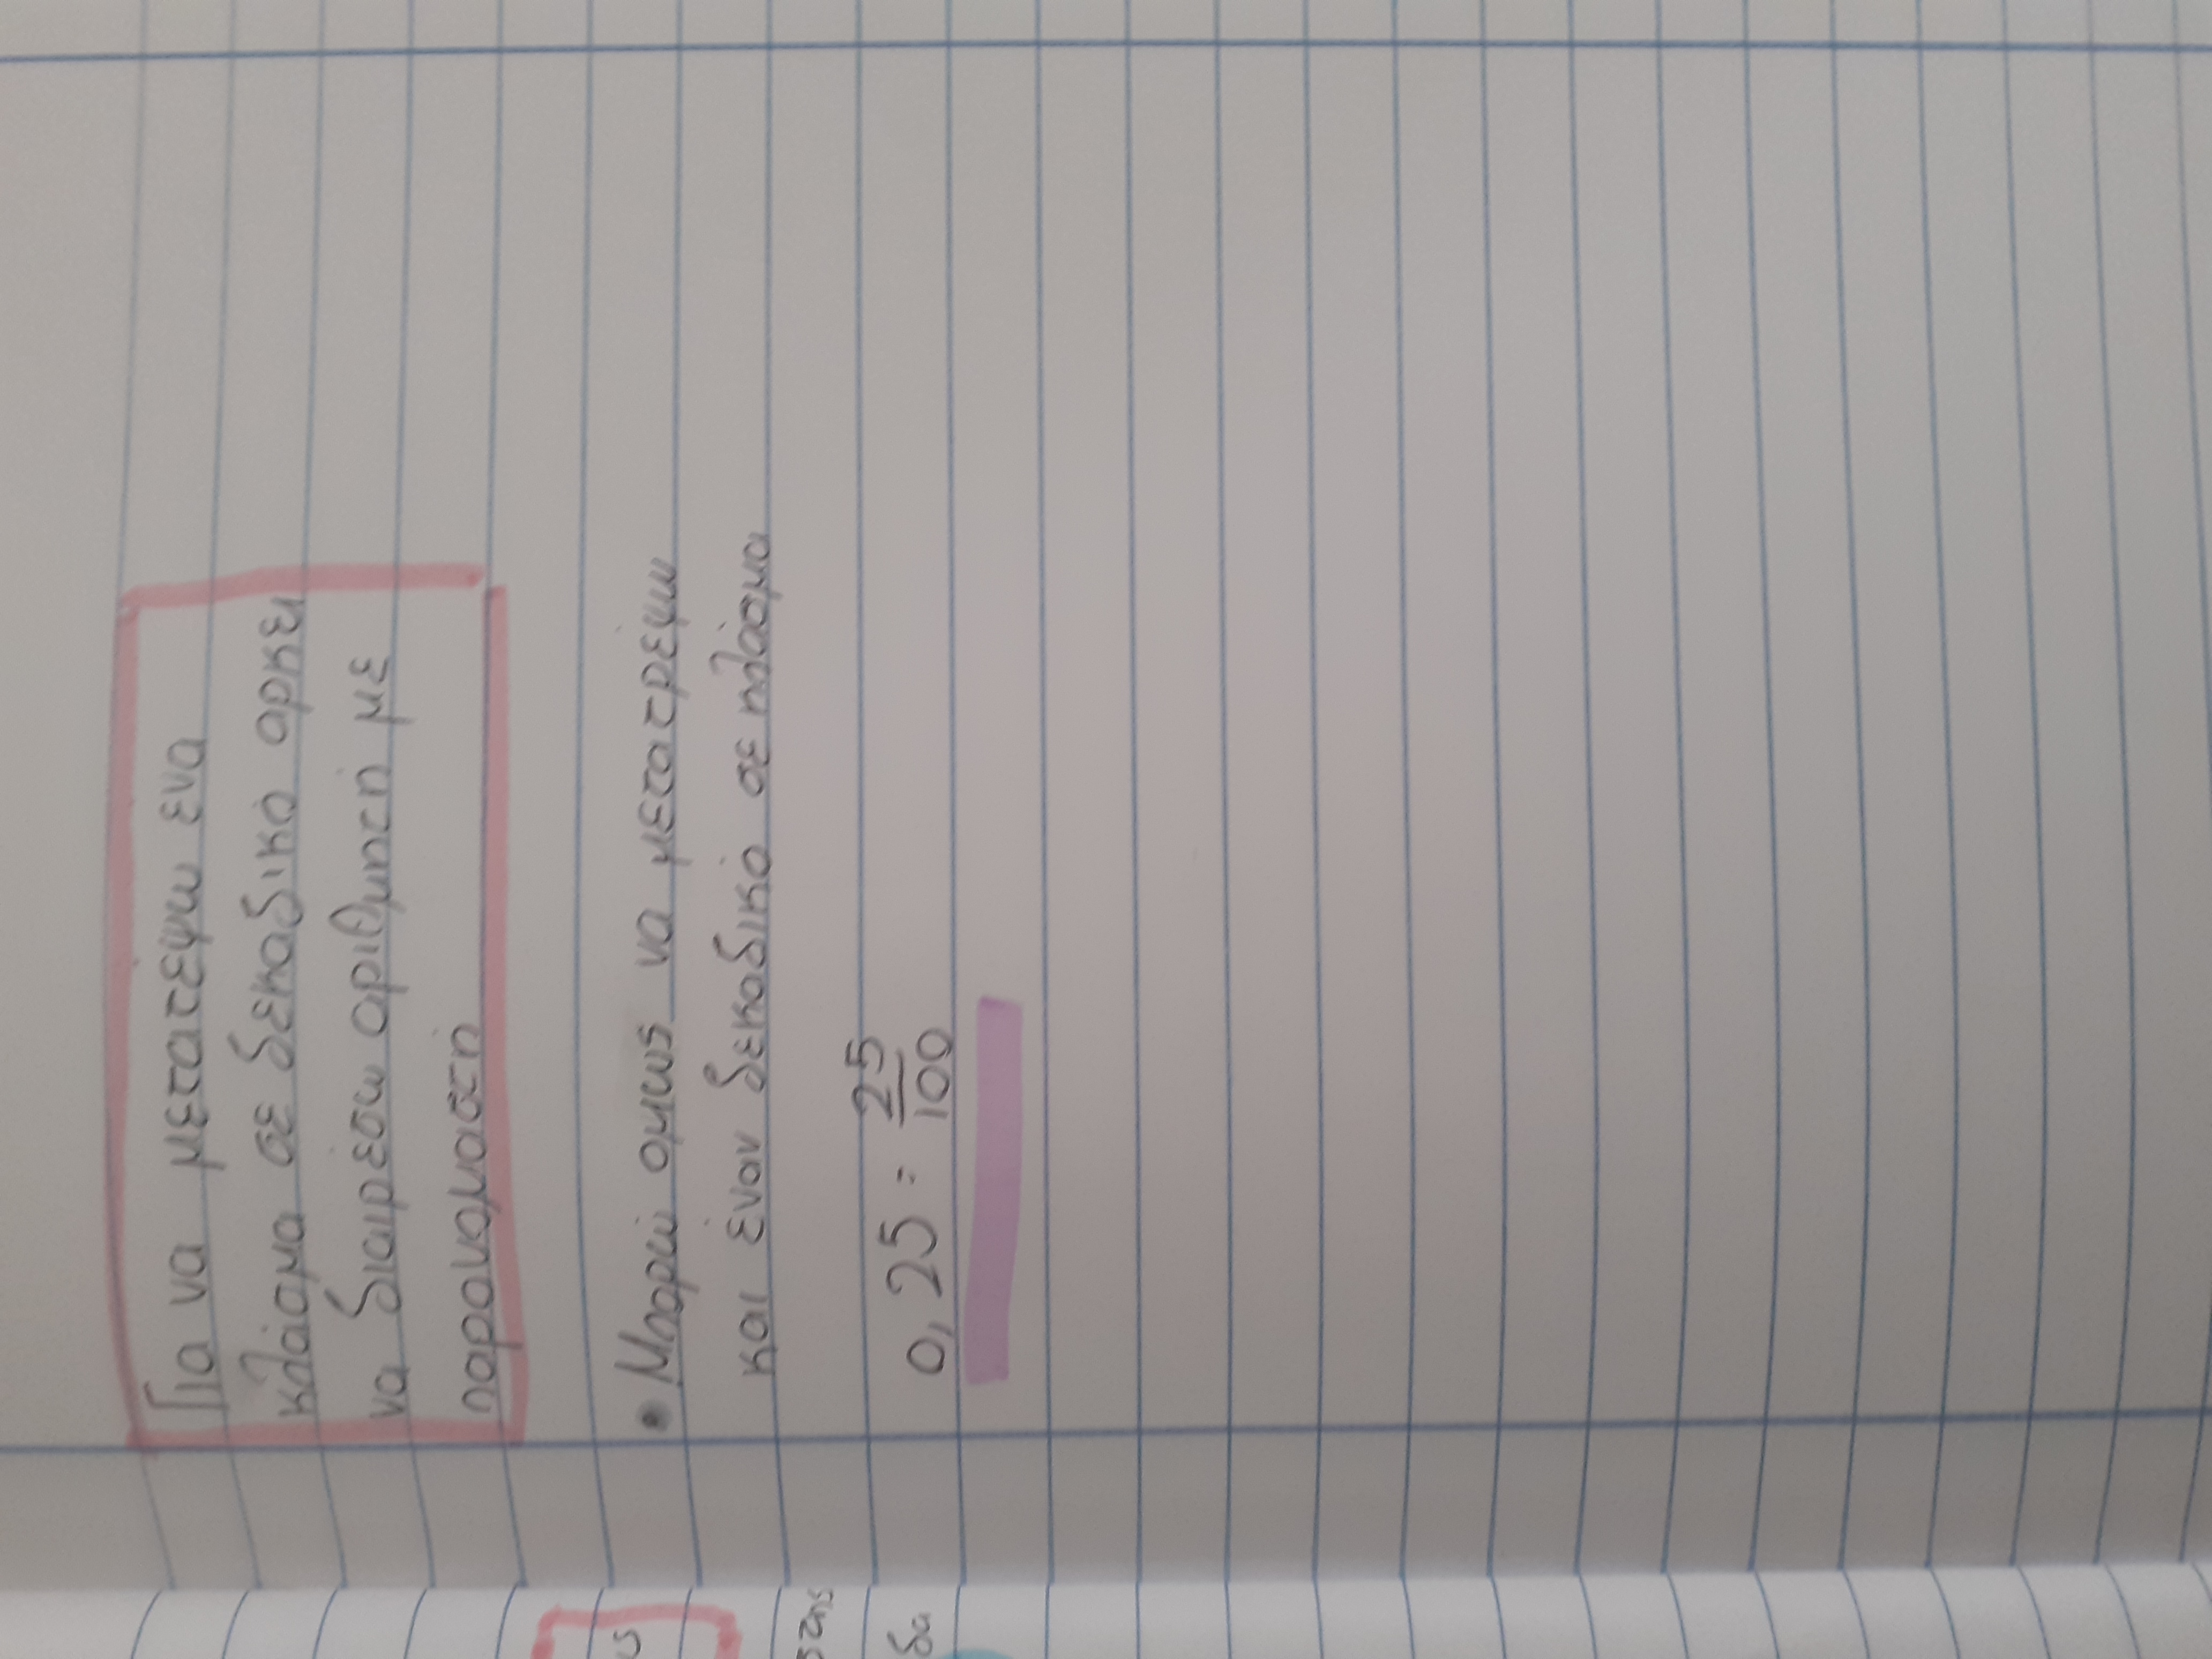 Για να μετατέψω ενα
κλάσμα σε δεκαδικό αρκει
να διαιρέσω αριθμητή με
παρονομαστή
• Μπορώ ομως να μετατρέψω
και έναν δεκαδικό σε κλάσμα
0,25 = 25/100
ς
στης
δα